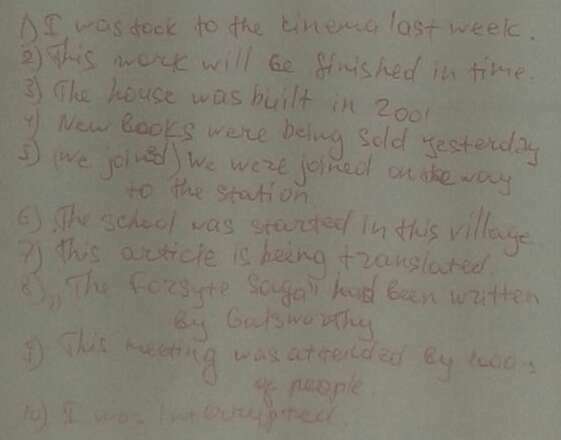 1) I was took to the cinema last week.
2) This work will be finished in time.
3) The house was built in 2001
4) New books were being sold yesterday
5) (we joined) we were joined on the way
to the station
6) The school was started in this village
7) This article is being translated.
8) „The Forsyte Saga" had been written
by Galsworthy
9) This meeting was attended by
of people.
10) I was